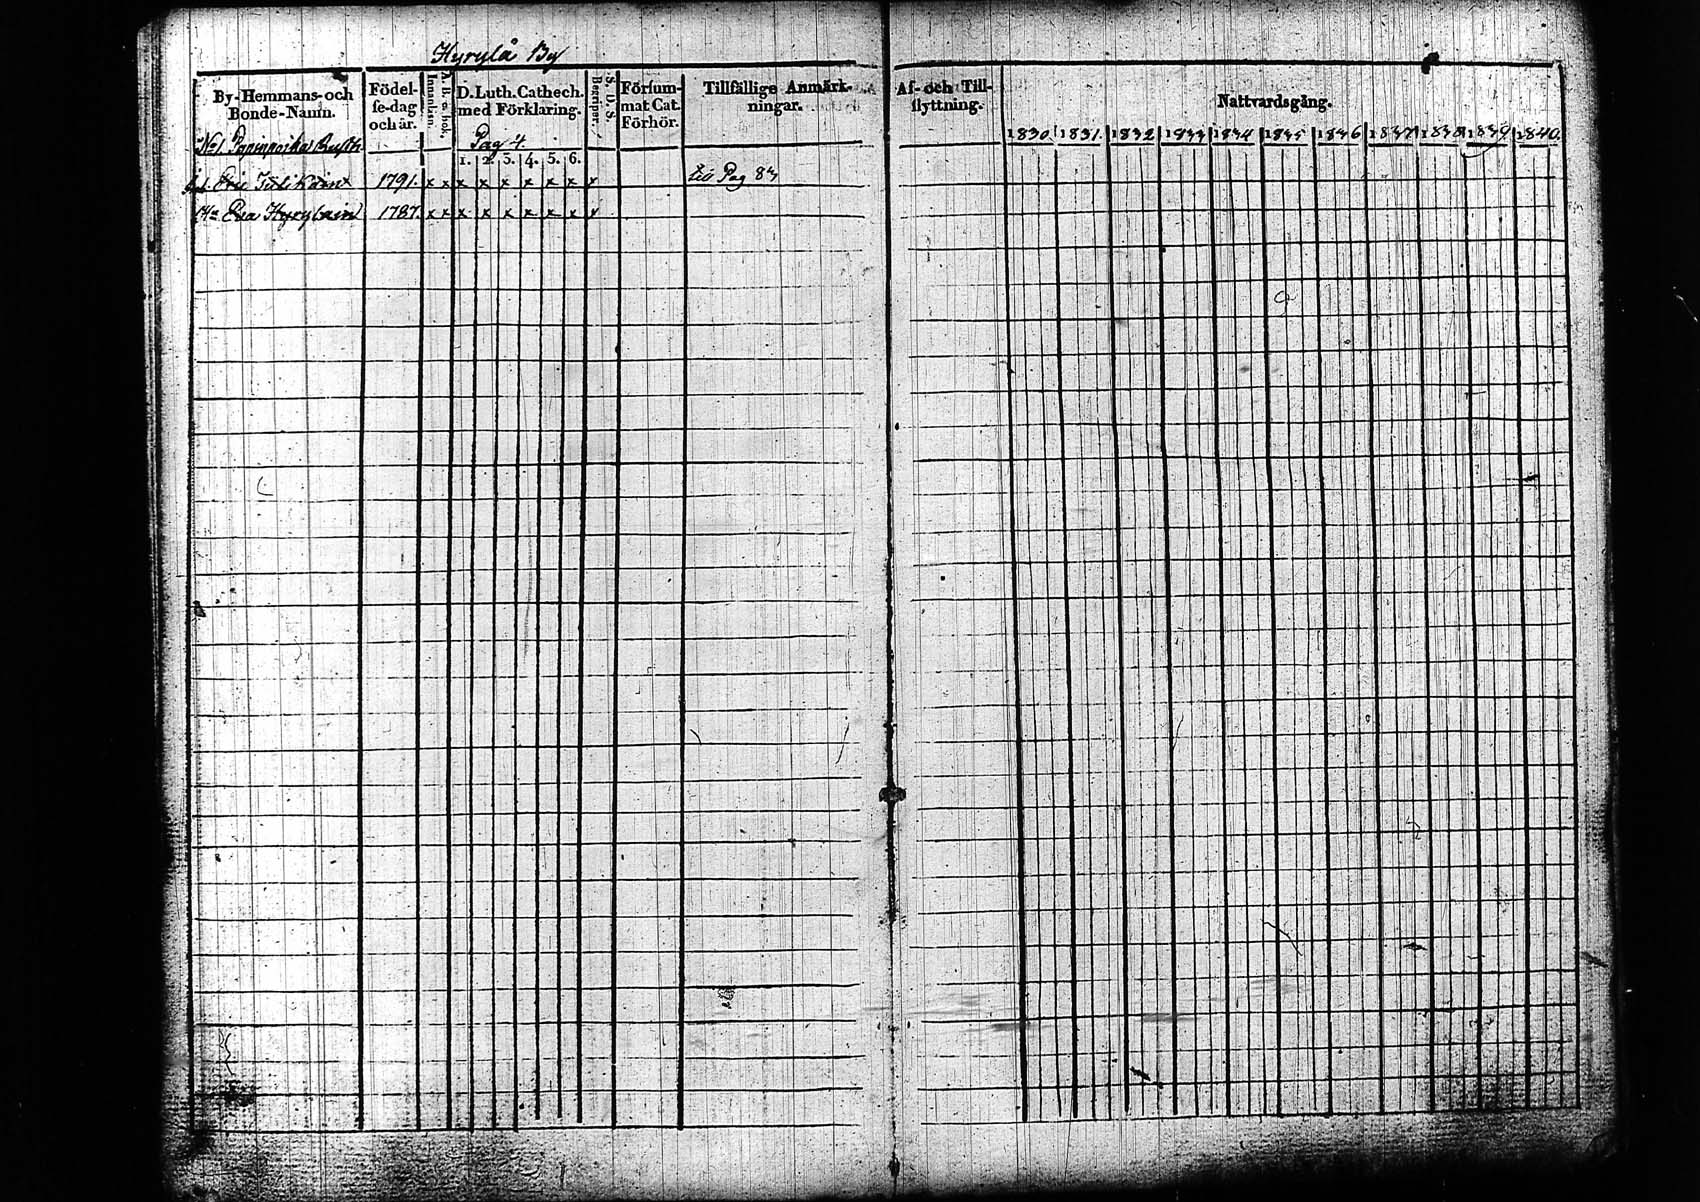 Hyrylä By
By-Hemmans-och Bonde-Namn.
Födelse-dag och år.
Innanläsn.
A. B. o. bok.
D. Luth. Cathech. med Förklaring.
Pag 4.
1. 2. 3. 4. 5. 6.
S. D. S.
Begriper.
Försummat Cat. Förhör.
Tillfällige Anmärkningar.
Af- och Tillflyttning.
Nattvardsgång.
1830. 1831. 1832 1833 1834 1835 1836 1837 1838 1839 1840.
No 1.
Eric 1791. x x x x x x x x x Pag 83
Eva 1787. x x x x x x x x x